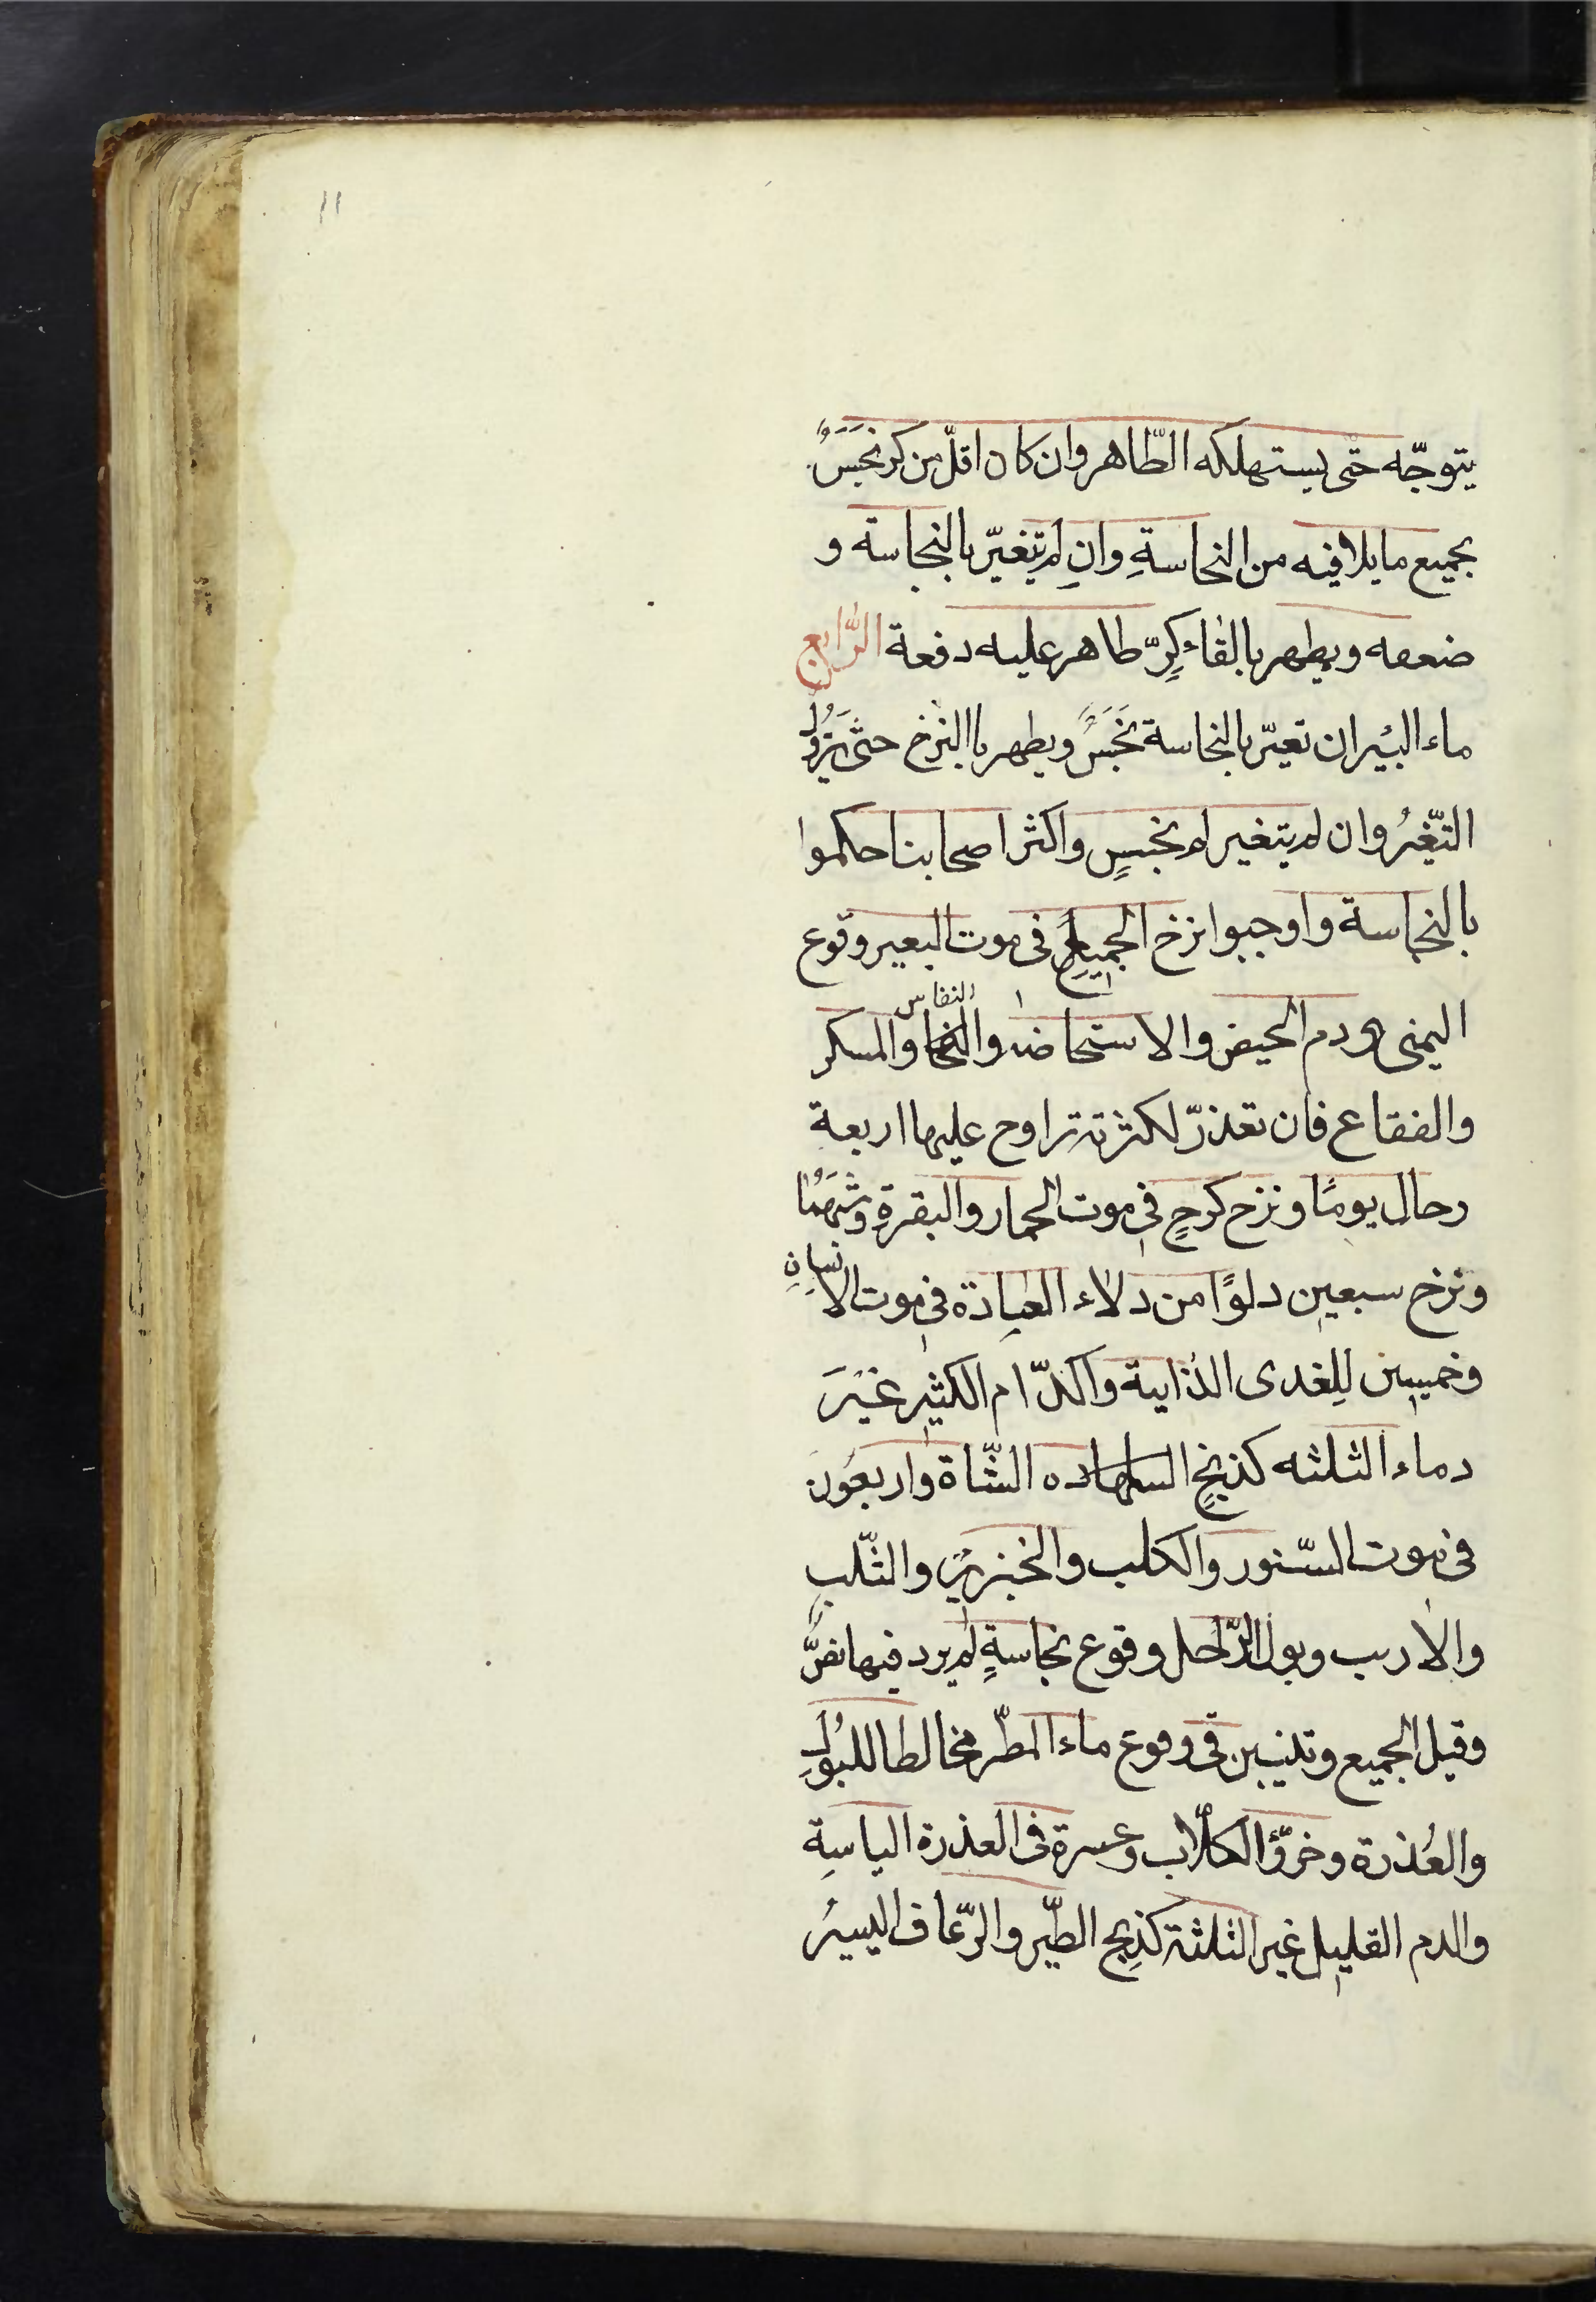 11
يتوجّه حتّى يستهلكه الطّاهر وان كان اقلّ من كر نَجَسَ
بجميع ما يلاقيه من النجاسةِ وانِ لم يتغيّر بالنجاسة و
ضعفه ويطهر بالقاء كِرّ طاهر عليه دفعة الرّابع
ماء البئير ان تغيّر بالنجاسة نَجَسَ ويطهر باالنزخ حتّى يَزُولُ
التغّيرُ وان لم يتغير لم ينجسٍ واكثر اصحابنا حكموا
بالنجاسة واوجبوا نزخ الجميع في موت البعير وقوع
اليمنى ودم الحيض والاستحاضه والنفاس والمسكر
والفقاع فان تعذرّ لكثرته تراوح عليها اربعة
رحال يومًا ونزح كرحٍ في موت الحمار والبقرةِ وشبهَهُما
ونزخ سبعين دلوًا من دلاء العبادة في موت الانسانِ
وخميسين لِلغدى الذايبة واكدّام الكثير غيَرَ
دماء الثلثه كذبحٍ الشّاة واربعون
في موت السّنور والكلب والخنزير والثّلب
والارىب وبول الرّحل وقوع نجاسةٍ لم يرد فيها نصٌّ
وقيل الجميع وثلثين في وقوع ماء المطّر مخالطا للبُولِ
والعُذرة وخرؤُ الكلاّب وعسرة في العذرة الياسِة
والدم القليل غير الثلثة كذِبح الطّير والرّعاف اليسيرُ